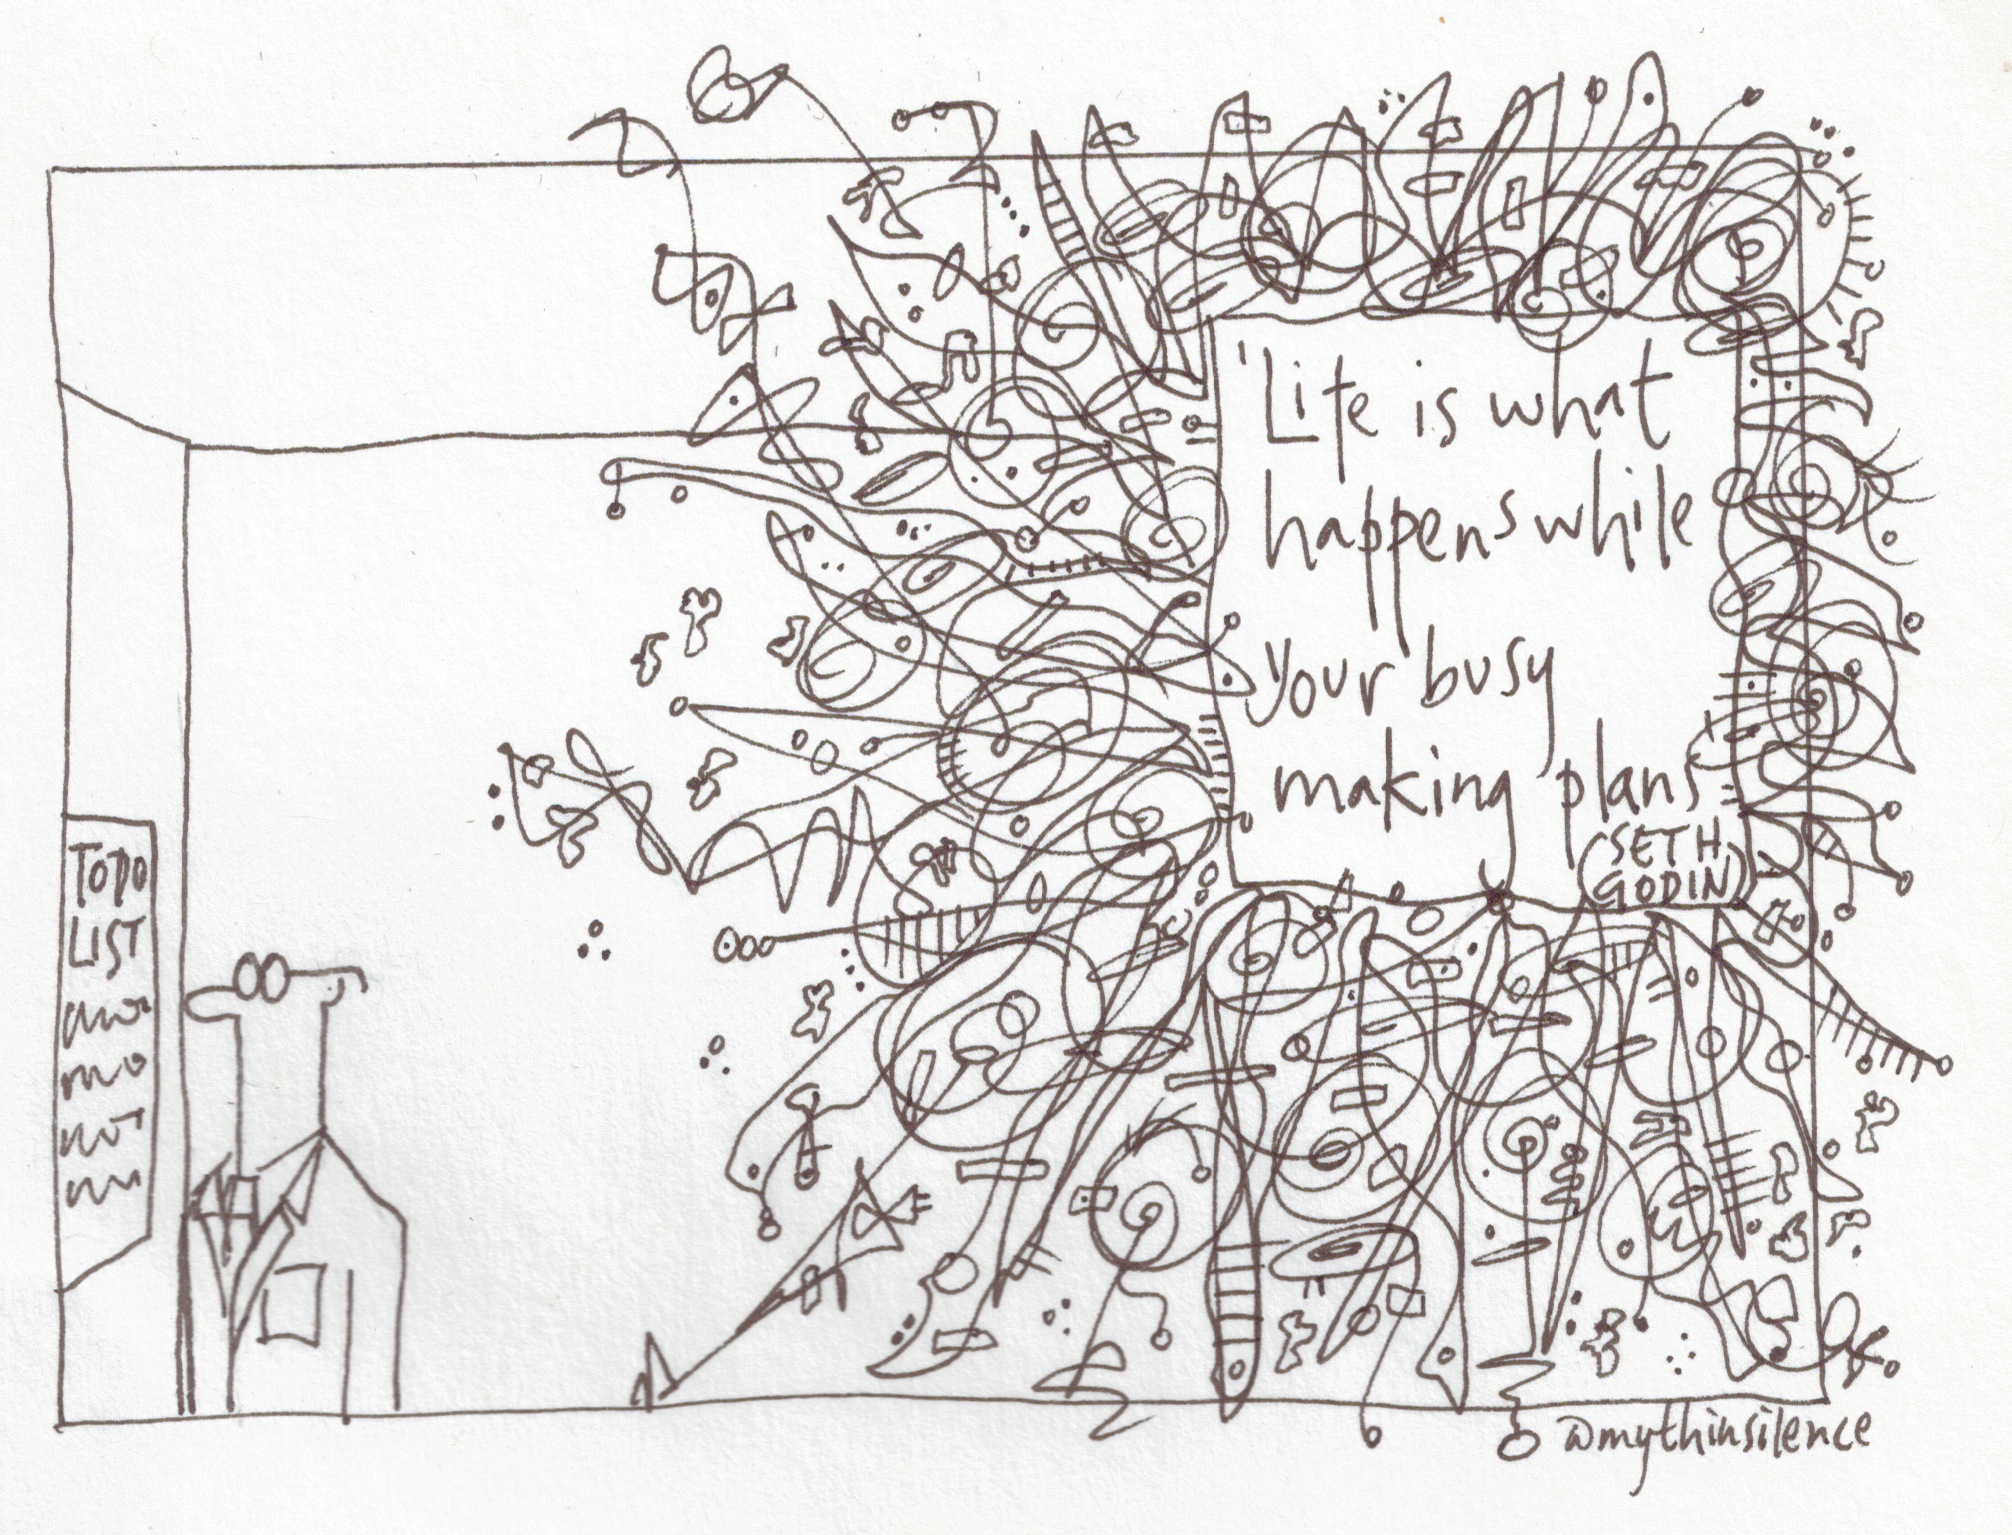 TODO
LIST
'Life is what
happens while
your busy
making plans'
(SETH
GODIN)
@mythinsilence